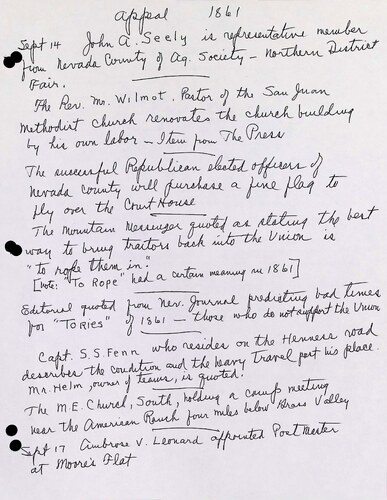 Appeal 1861
Sept 14 John A. Seely is representative member
from Nevada County of Ag. Society - Northern District
Fair.
The Rev. Mr. Wilmot, Pastor of the San Juan
Methodist Church renovates the church building
by his own labor - Item from The Press
The successful Republican elected officers of
Nevada County will purchase a fine flag to
fly over the Court House
The Mountain Messenger quoted as stating the best
way to bring traitors back into the Union is
"to rope them in."
[Note: "To Rope" had a certain meaning in 1861]
Editorial quoted from Nev. Journal predicting bad times
for "TORIES" of 1861 - those who do not support the Union
Capt. S.S. Fenn who resides on the Henness road
describes the condition and the heavy travel past his place.
Mr. Helm, owner of teams, is quoted.
The M.E. Church, South, holding a camp meeting
near the American Ranch four miles below Grass Valley
Sept 17 Ambrose V. Leonard appointed Post Master
at Moore's Flat